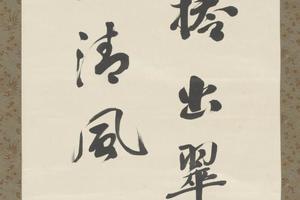 捲出翠
清風